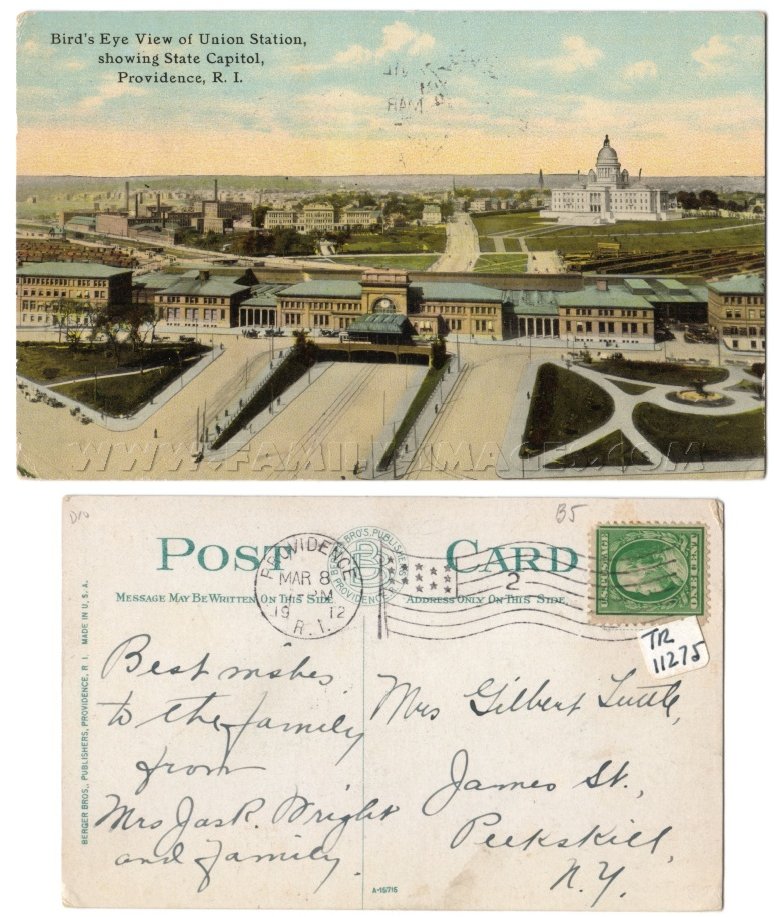 Bird's Eye View of Union Station,
showing State Capitol,
Providence, R. I.
MAR
WWW.FAMILY-IMAGES.COM
D10
B5
POST CARD
BERGER BRO'S. PUBLISHERS
PROVIDENCE
B
MESSAGE MAY BE WRITTEN ON THIS SIDE
ADDRESS ONLY ON THIS SIDE.
PROVIDENCE
MAR 8
1912
R.I.
2
U.S. POSTAGE
ONE CENT
TR
11275
Best wishes
to the family
from
Mrs Jas R. Wright
and family.
Mrs Gilbert Tuttle,
James St.,
Peekskill,
N.Y.
BERGER BROS., PUBLISHERS, PROVIDENCE, R. I. MADE IN U. S. A.
A-15715